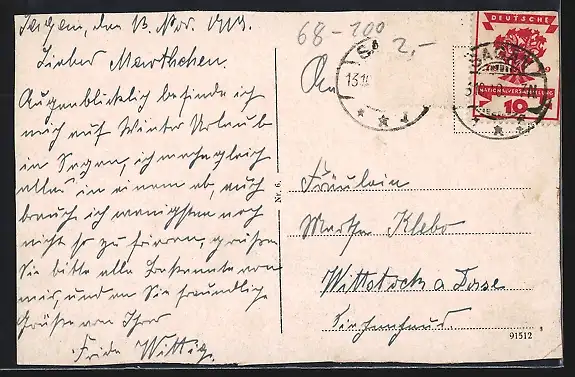 Sagan, den 13. Nov. 1919.
Liebes Marthchen.
Augenblicklich befinde ich
mich auf Winter Urlaub
in Sagan, ich mache gleich
alles in einem ab, auch
brauch ich wenigstens noch
nicht so zu frieren, grüßen
Sie bitte alle Bekannte von
mir, und an Sie freundliche
Grüße von Ihrer
Frida Wittig.
68-100
2,-
SAGAN
13.11
DEUTSCHE
NATIONALVERSAMMLUNG
10
An
Fräulein
Martha Klebo
Wittstock a Dosse
Nr. 6.
91512